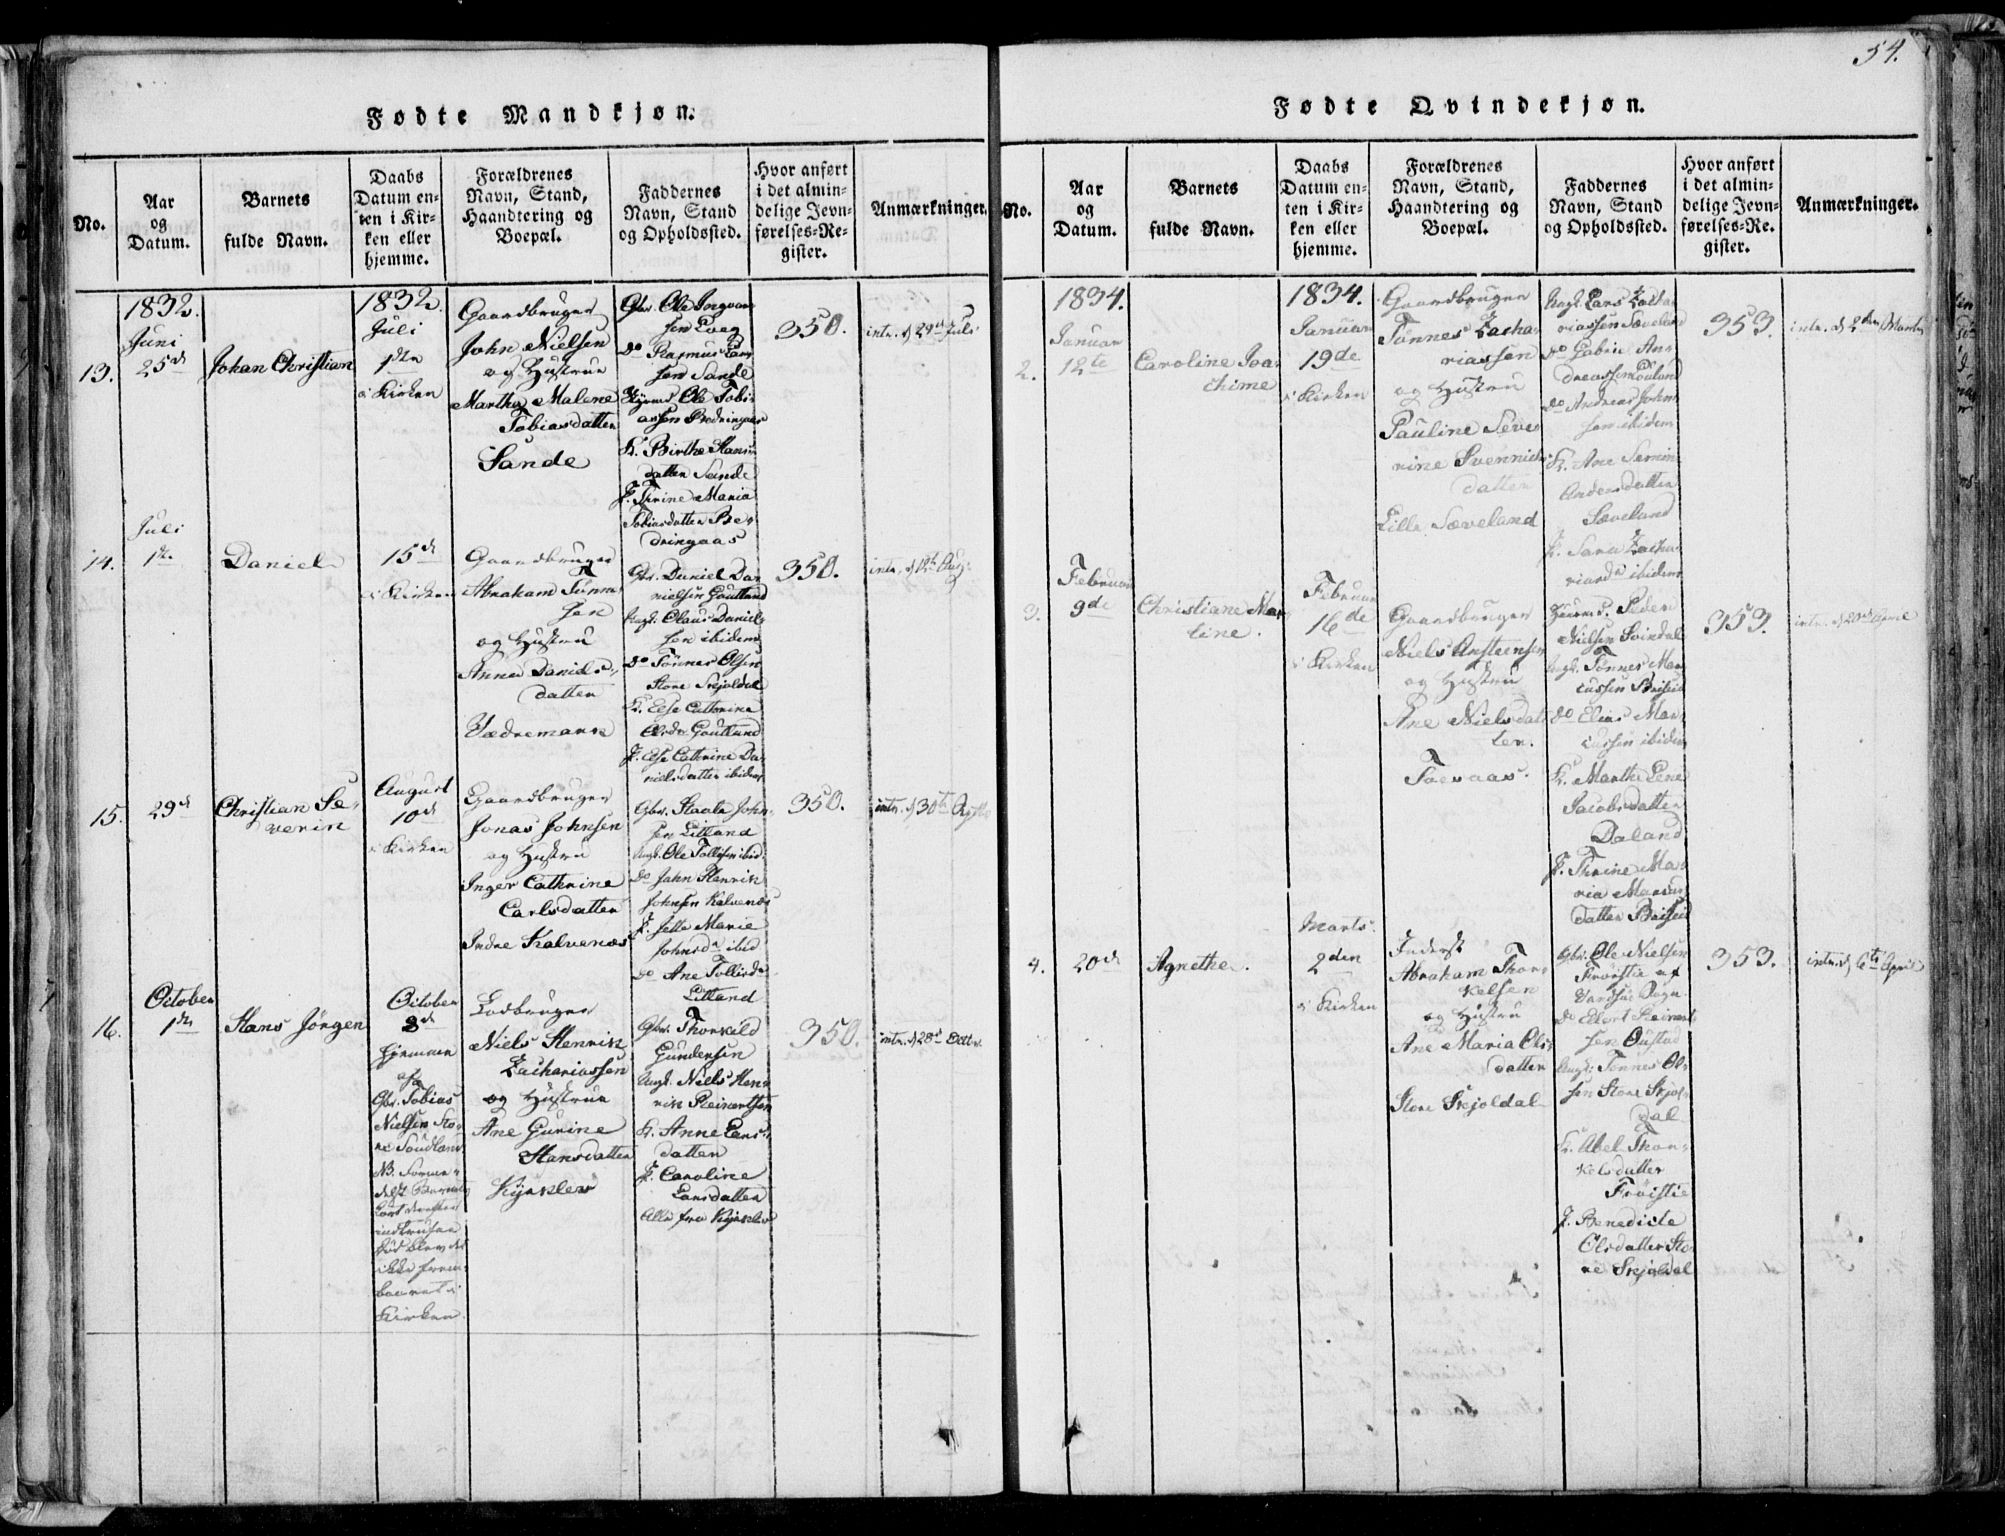 54.
Fødte Mandkjøn.
No.
Aar
og
Datum.
Barnets
fulde Navn.
Daabs
Datum en-
ten i Kir-
ken eller
hjemme.
Forældrenes
Navn, Stand,
Haandtering og
Boepæl.
Faddernes
Navn, Stand
og Opholdssted.
Hvor anført
i det almin-
delige Jevn-
førelses-Re-
gister.
Anmærkninger.
13.
1832.
Juni
25de
Johan Christian
1832.
Juli
1ste
i Kirken
Gaardbruger
John Nielsen
og Hustrue
Martha Malene
Tobiasdatter
Sande
Gbr. Ole Ingvar
sen
Do Rasmus Lar
sen Sande
Ole Tobi
assen
K. Birthe Hans
datter Sande
P. Thrine Maria
Tobiasdatter Be-
dringaas
350.
intr. d 29de Juli
14.
Juli
1ste
Daniel
15de
i Kirken
Gaardbruger
Abraham Tønne
sen
og Hustru
Anna Daniels-
datter
Vædremark
Gbr. Daniel Da
nielsen Goutland
Ungk. Claus Daniel
sen ibidem
do Tønnes Olsen
Store Skjoldal
K. Else Cathrine
Olsdr. Goutland
P. Else Cathrine Da-
nielsdatter ibidem
350.
intr. d 12te Aug:
15.
29de
Christian Se-
verin
August
10de
i Kirken
Gaardbruger
Jonas Johnsen
og Hustru
Inger Cathrine
Carlsdatter
Indre Kalvenæs
Gbr. Staale John-
sen Litland
Ungk. Ole Tollisen ibid.
do John Henrik
Johnsen Kalvenæs
P. Jette Marie
Johnsdr ibid
do Ane Tollisdr
Litland
350.
intr. d 30te
16.
October
1ste
Hans Jørgen
October
3de
hjemme
af
Gbr. Tobias
Nielsen Sto-
re Soudland
NB. Forme-
delst Barnet
kort derefter
indtrufne
Død blev det
ikke frem-
baaret i
Kirken
Lodbruger
Niels Henrik
Zachariassen
og Hustrue
Ane Gurine
Hansdatter
Kirkler
Gbr. Thorkeld
Gundersen
Ungk. Niels Hen-
rik Reinertsen
K. Anne Lars-
datter
P. Caroline
Larsdatter
Alle fra
350.
intr. d 28de
Fødte Qvindekjøn.
No.
Aar
og
Datum.
Barnets
fulde Navn.
Daabs
Datum en-
ten i Kir-
ken eller
hjemme.
Forældrenes
Navn, Stand,
Haandtering og
Boepæl.
Faddernes
Navn, Stand
og Opholdssted.
Hvor anført
i det almin-
delige Jevn-
førelses-Re-
gister.
Anmærkninger.
2.
1834.
Januar
12te
Caroline Joa-
chime
1834.
Januar
19de
i Kirken
Gaardbruger
Tønnes Zacha-
riassen
og Hustru
Pauline Seve-
rine Svennichs
datter
Lille Sæveland
Ungk. Lars Zacha-
riassen Sæveland
do Gabriel An-
dreassen
do Andreas John
sen ibidem
K. Ane Serine
Andersdatter
Sæveland
P. Sara Zacha-
riasdr ibidem
353.
intr. d 2den Marts
3.
Februar
9de
Christiane Mar-
tine.
Februar
16de
i Kirken
Gaardbruger
Niels Ansteensen
og Hustru
Ane Nielsdat-
ter.
Peder
Nielsen Svindal
Ungk. Tønnes Mar-
cussen Briseid
do Elias Mar-
cussen ibidem
K. Marthe Lene
Jacobsdatter
Daland
P. Thrine Ma-
ria Marcus
datter Briseid
353.
intr. d 20de April
4.
20de
Agnethe.
Marts.
2den
i Kirken
Inderst
Abraham Thor-
kelsen
og Hustru
Ane Maria Ols-
datter
Store Skjoldal
Gbr. Ole Nielsen
Frøistie af
Vandsøe Sogn.
do Elert Reinert-
sen Oustad
Ungk: Tønnes Ol-
sen Store Skjol-
dal
K. Abel Thor-
kelsdatter
Frøistie
P. Benedicte
Olsdatter Sto-
re Skjoldal
353.
intr. d 6te April